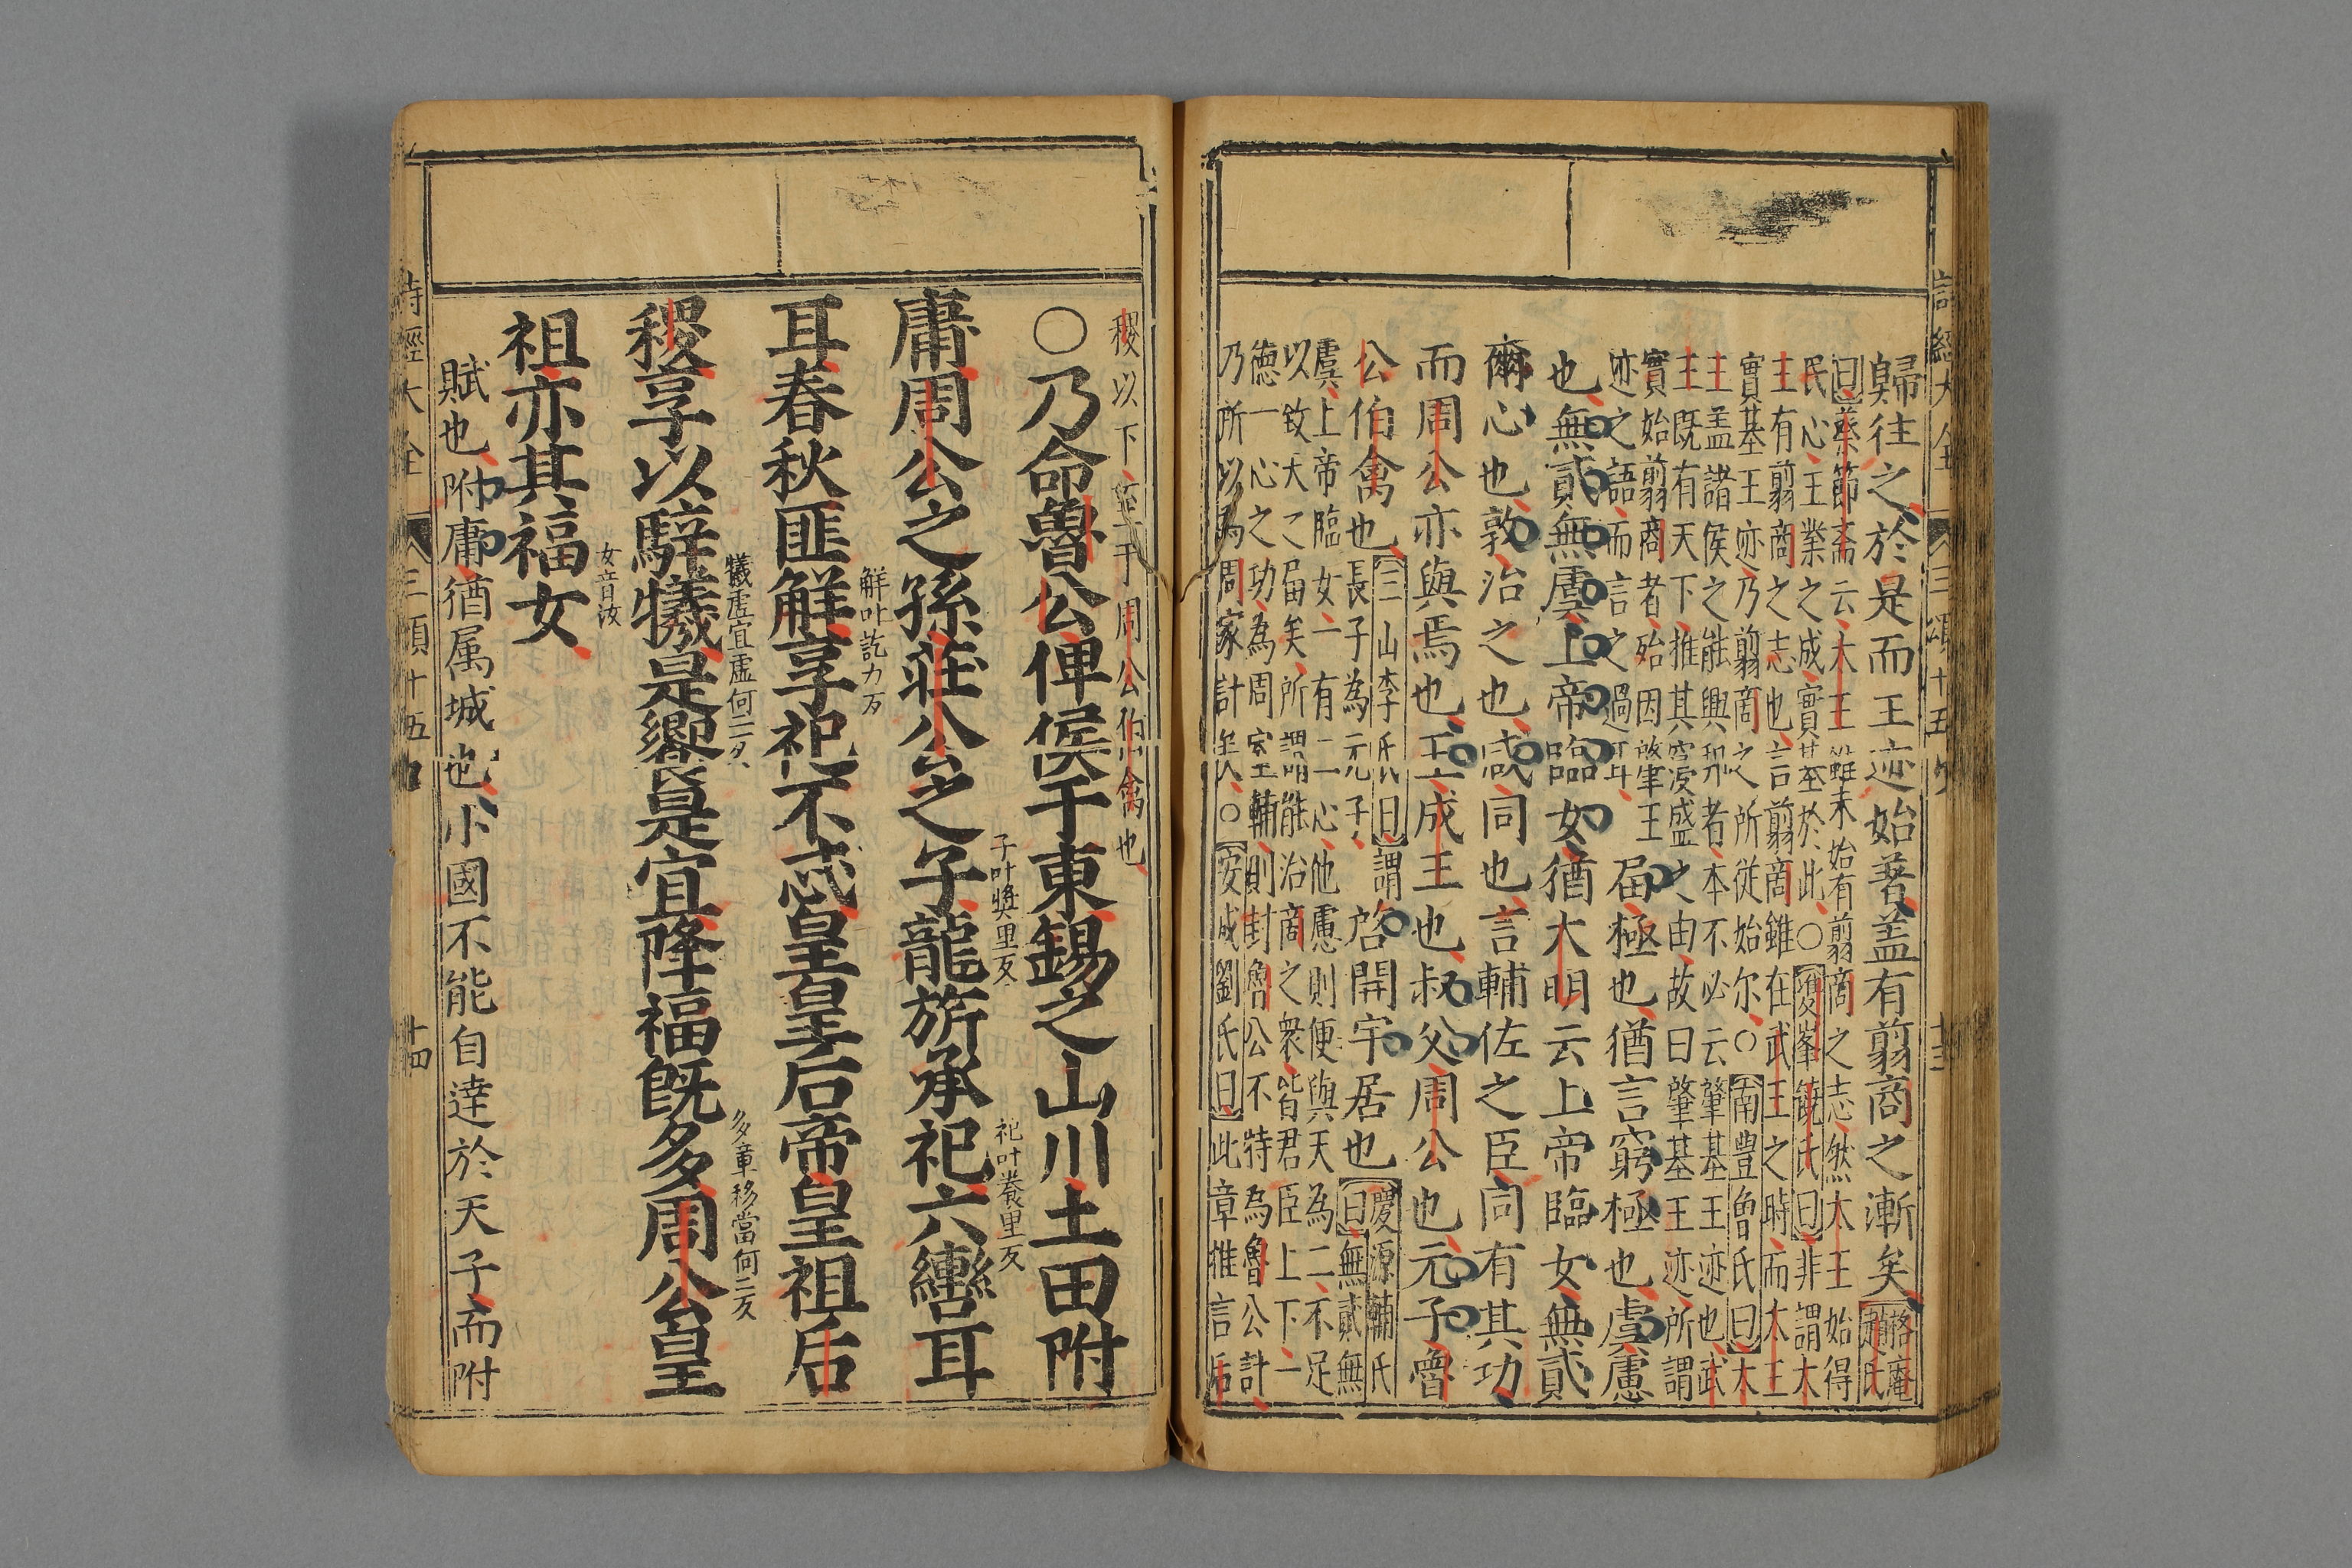 詩經大全 三頌十五 十三
歸往之於是而王迹始著盖有翦商之漸矣格庵趙氏
曰蔡節齋云太王雖未始有翦商之志然太王始得
民心王業之成實基於此○雙峯饒氏曰非謂大
王有翦商之志也言翦商雖在武王之時而太王
實基王迹乃翦商之所從始尔○南豊曾氏曰太
王盖諸侯之能興邦者本不必云肇基王迹也武
王既有天下推其寖盛之由故曰肇基王迹所謂
實始翦商者殆因肇王
迹之語而言之過耳
屆極也猶言窮極也虞慮
也無貳無虞上帝臨女猶大明云上帝臨女無貳
爾心也敦治之也咸同也言輔佐之臣同有其功
而周公亦與焉也王成王也叔父周公也元子魯
公伯禽也三山李氏曰謂長子為元子啓開宇居也慶源輔氏曰無貳無
虞上帝臨女一有二心他慮則便與天為二不足
以致大之屆矣所謂能治商之衆皆君臣上下一
德一心之功為周室輔則封魯公不特為魯公計
乃所以為周家計矣○安成劉氏曰此章推言后
稷以下至于周公伯禽也
○乃命魯公俾侯于東錫之山川土田附
庸周公之孫莊公之子子叶奬里反龍旂承祀祀叶養里反六轡耳
耳春秋匪解解叶訖力反享祀不忒皇皇后帝皇祖后
稷享以騂犧犧虛宜虛何二反是饗是宜降福既多多章移當何二反周公皇
祖亦其福女女音汝
賦也附庸猶属城也小國不能自達於天子而附
詩經大全 三頌十五 十四